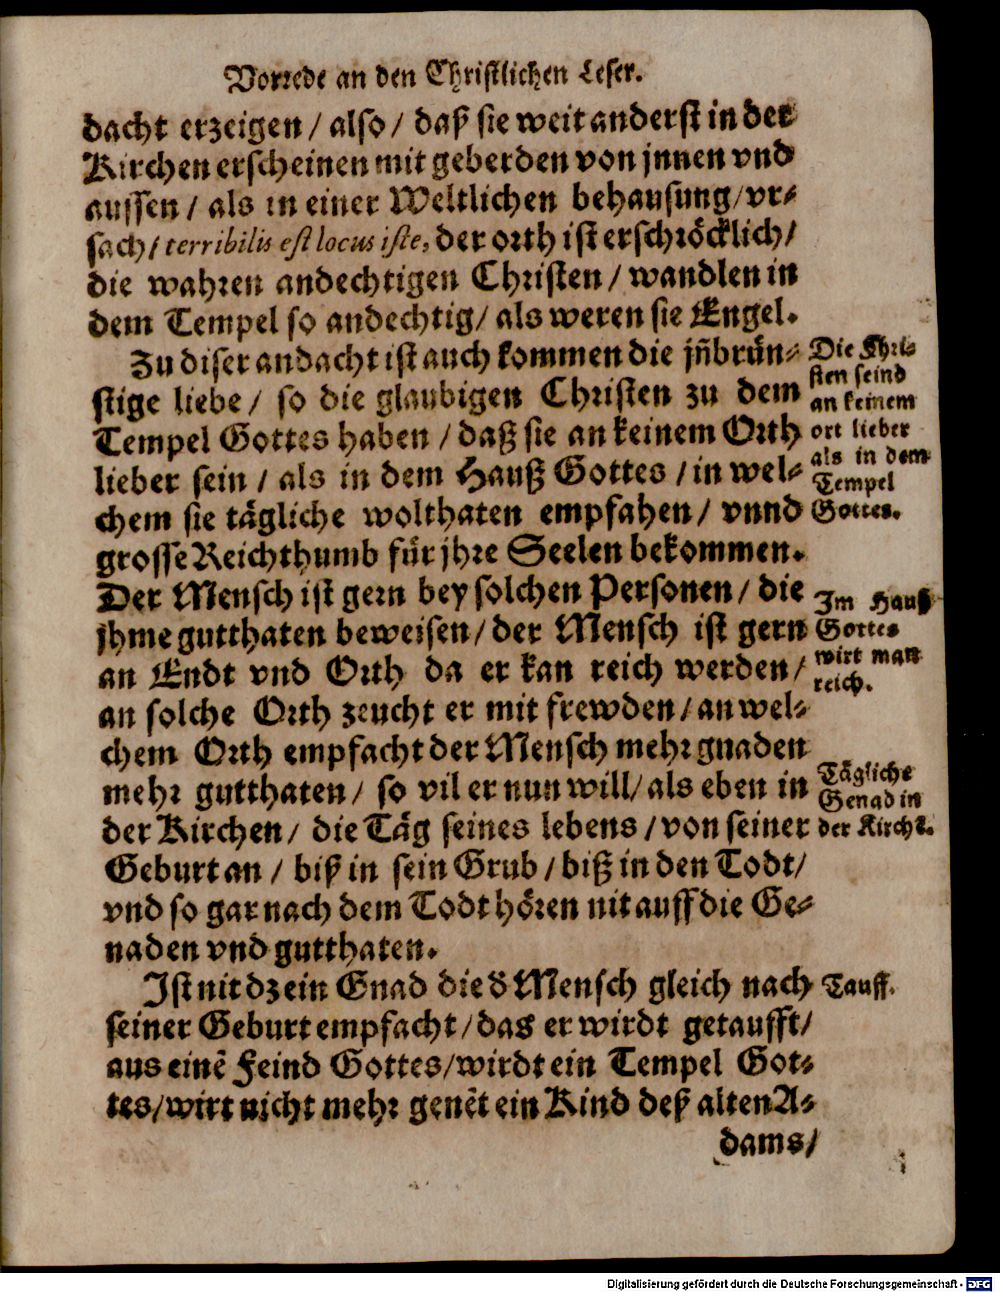 Vorrede an den Christlichen Leser.
dacht erzeigen / also / daß sie weit anderst in der
Kirchen erscheinen mit geberden von jnnen vnd
aussen / als in einer Weltlichen behausung / vr-
sach / terribilis est locus iste, der orth ist erschröcklich /
die wahren andechtigen Christen / wandlen in
dem Tempel so andechtig / als weren sie Engel.
Zu diser andacht ist auch kommen die jn̄brün-
stige liebe / so die glaubigen Christen zu dem
Tempel Gottes haben / daß sie an keinem Orth
lieber sein / als in dem Hauß Gottes / in wel-
chem sie tägliche wolthaten empfahen / vnnd
grosse Reichthumb für jhre Seelen bekommen.
Der Mensch ist gern bey solchen Personen / die
jhme gutthaten beweisen / der Mensch ist gern
an Endt vnd Orth da er kan reich werden /
an solche Orth zeucht er mit frewden / an wel-
chem Orth empfacht der Mensch mehr gnaden
mehr gutthaten / so vil er nun will / als eben in
der Kirchen / die Täg seines lebens / von seiner
Geburt an / biß in sein Grub / biß in den Todt /
vnd so gar nach dem Todt hören nit auff die Ge-
naden vnd gutthaten.
Ist nit dz ein Gnad die d̓ Mensch gleich nach
seiner Geburt empfacht / das er wirdt getaufft /
aus einē Feind Gottes / wirdt ein Tempel Got-
tes / wirt nicht mehr genēt ein Kind deß alten A-
dams /
Die Chri-
sten seind
an keinem
ort lieber
als in dem
Tempel
Gottes.
Im Hauß
Gottes
wirt man
reich.
Tägliche
Genad in
der Kirchē.
Tauff.
Digitalisierung gefördert durch die Deutsche Forschungsgemeinschaft - DFG